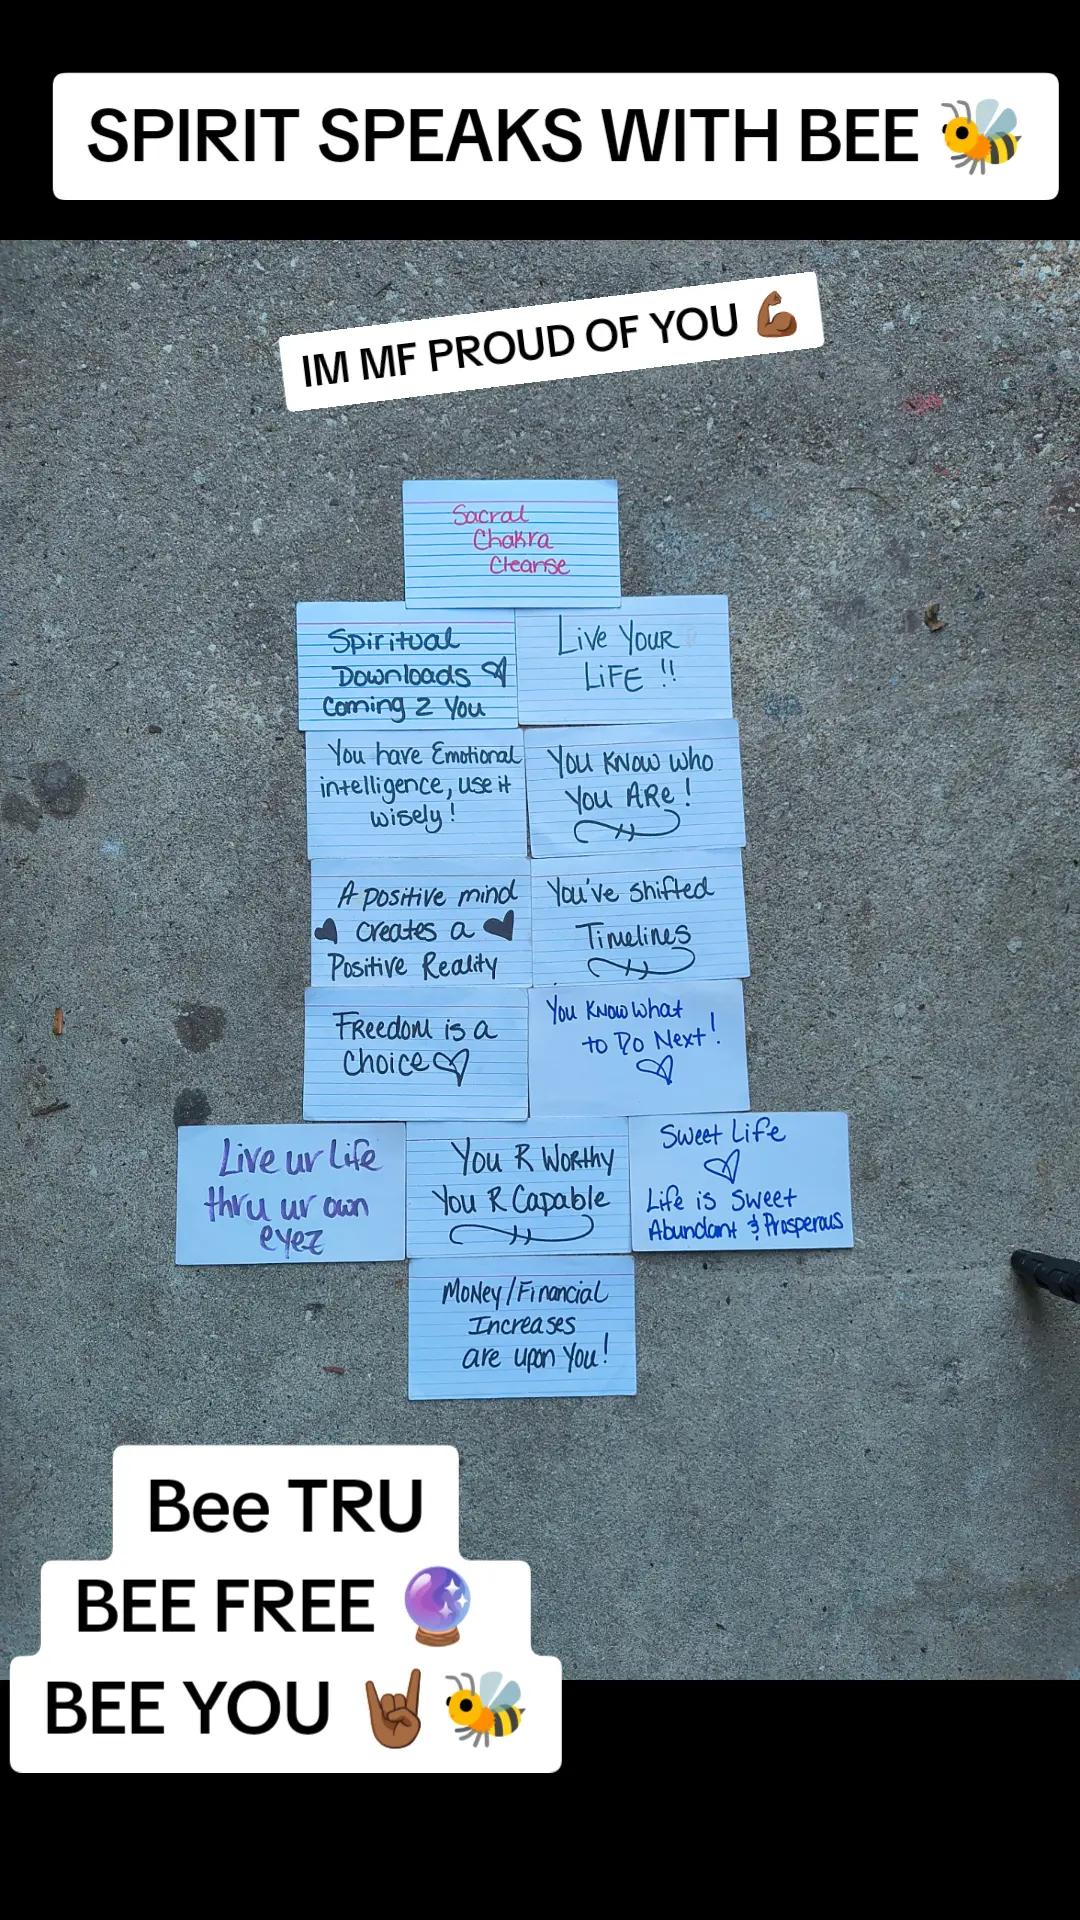 SPIRIT SPEAKS WITH BEE 🐝
IM MF PROUD OF YOU 💪🏾
Sacral
Chakra
Cleanse
Spiritual
Downloads ♡
Coming 2 You
Live Your
LiFE !!
You have Emotional
intelligence, use it
wisely!
You Know who
You ARe!
A positive mind
♥ creates a ♥
Positive Reality
You've shifted
Timelines
Freedom is a
Choice ♡
You Know what
to Do Next!
♡
Live ur life
thru ur own
eyez
You R Worthy
You R Capable
Sweet Life
♡
Life is Sweet
Abundant & Prosperous
Money/Financial
Increases
are upon You!
Bee TRU
BEE FREE 🔮
BEE YOU 🤘🏾 🐝